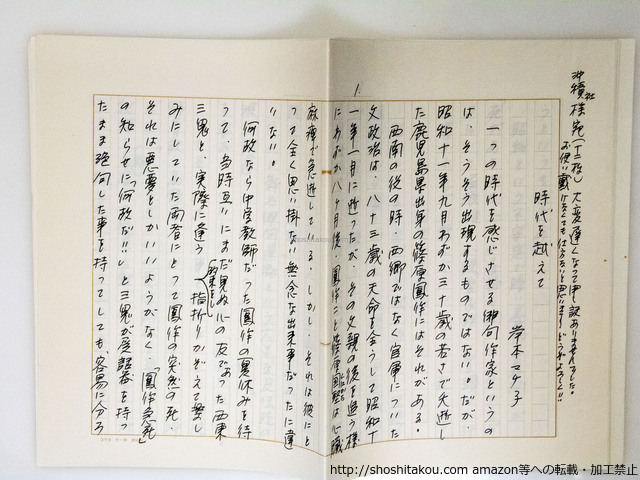 沖積社様宛(十二枚)大変遅くなって申し訳ありませんでした。
お使い戴けなくても仕方ないと思います。どうぞよろしく!!
時代を越えて
岸本マチ子
一つの時代を感じさせる俳句作家というの
は、そうそう出現するものではない。だが、
昭和十一年九月わずか三十歳の若さで夭逝し
た鹿児島県出身の篠原鳳作にはそれがある。
西南の役の時、西郷ではなく官軍についた
父政治は、八十三歳の天命を全うして昭和十
一年一月に逝ったが、その父親の後を追う様
にわずか八ヶ月後、鳳作こと篠原国堅は心臓
麻痺で急逝している。しかし、それは彼にと
って全く思い掛ない無念な出来事だったに違
いない。
何故なら中学教師だった鳳作の夏休みを待
って、当時互いにまだ見ぬ心の友であった西東
三鬼と、実際に逢う約束をし指折りかぞえて楽し
みにしていた両者にとって鳳作の突然の死、
それは悪夢としかいいようがなく、「鳳作急死」
の知らせに「何故だ!!」と三鬼が受話器を持っ
たまま絶句した事を持ってしても、容易に分ろ
1.
http://shoshitakou.com amazon等への転載・加工禁止